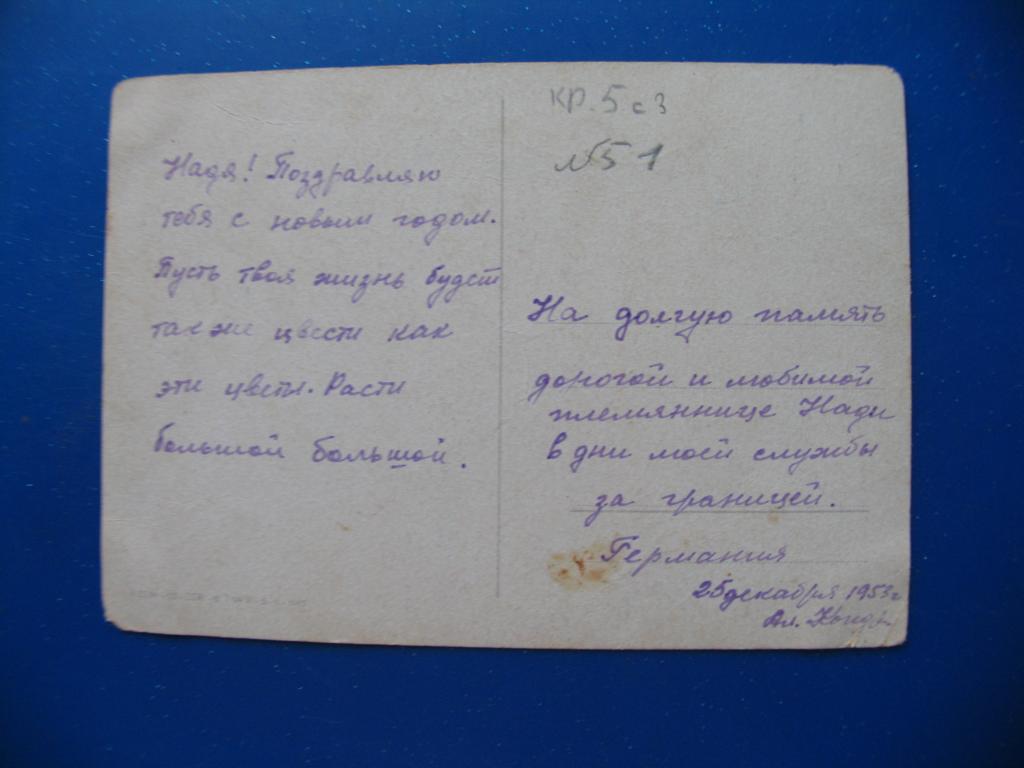 Надя! Поздравляю
тебя с новым годом.
Пусть твоя жизнь будет
так же цвести как
эти цветы. Расти
большой большой.
КР. 5 с 3
№51
На долгую память
дорогой и любимой
племяннице Нади
в дни моей службы
за границей.
Германия
25 декабря 1953г
Ал.